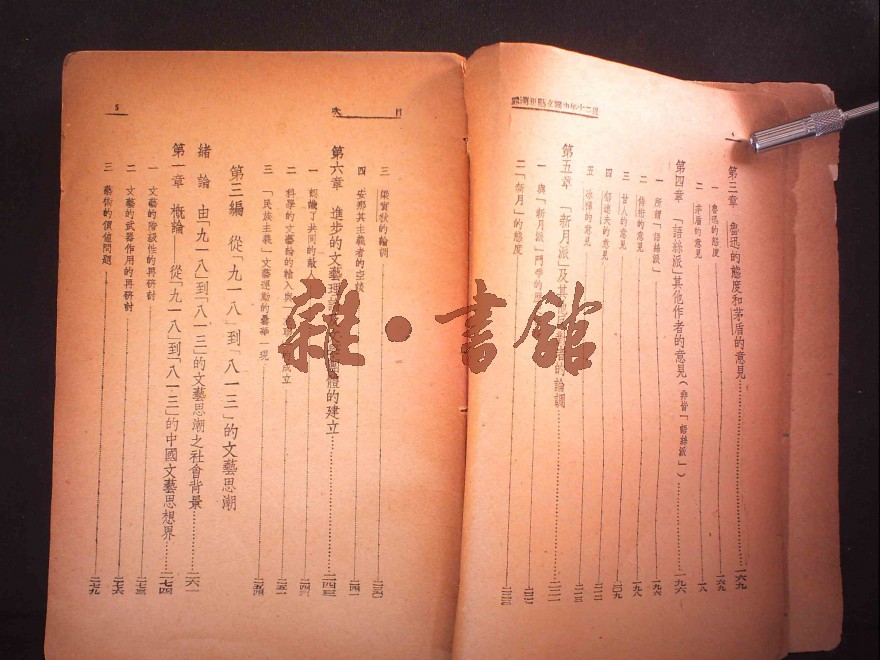 第三章　魯迅的態度和茅盾的意見……一六九
一　魯迅的態度……一六九
二　茅盾的意見
第四章　「語絲派」其他作者的意見（非皆「語絲派」）……一九六
一　所謂「語絲派」……一九六
二　侍桁的意見……一九八
三　甘人的意見……二〇九
四　郁達夫的意見
五　冰禪的意見……二一三
第五章　「新月派」及其他……的論調……二二二
一　與「新月派」鬥爭的
二　「新月」的態度
5
目　次
三　梁實秋的論調
四　安那其主義者的空談……二四一
第六章　進步的文藝理論……團體的建立……二四三
一　認識了共同的敵人……二四三
二　科學的文藝論的輸入與……成立……二五一
三　「民族主義」文藝運動的曇華一現……二五四
第三編　從「九一八」到「八一三」的文藝思潮
緒　論　由「九一八」到「八一三」的文藝思潮之社會背景……二六一
第一章　概論——從「九一八」到「八一三」的中國文藝思想界……二七四
一　文藝的階級性的再研討……二七三
二　文藝的武器作用的再研討……二七六
三　藝術的價值問題……二七九
雜·書館